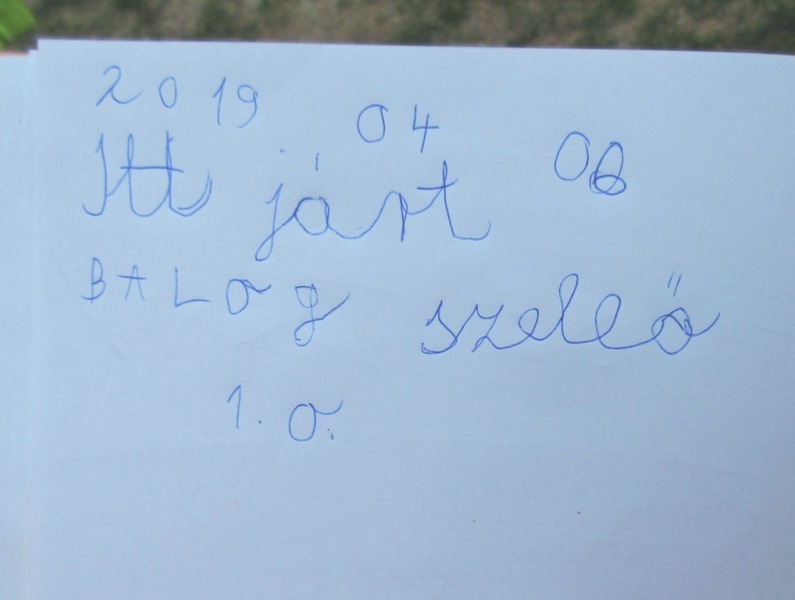 2019 04 06
Itt járt
BALog szellő
1. o.